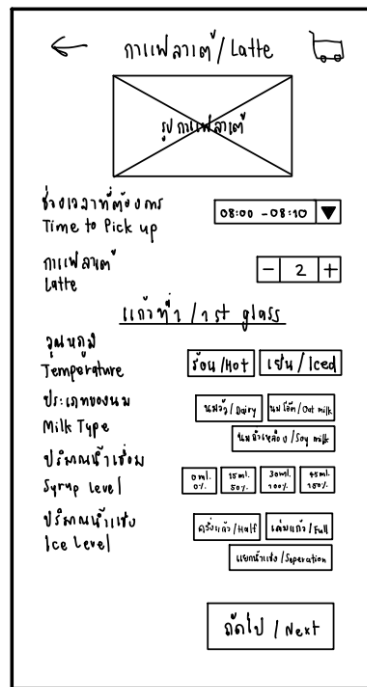 กาแฟลาเต้/Latte
รูปกาแฟลาเต้
ช่วงเวลาที่ต้องการ
Time to Pick up
08:00 - 08:10
กาแฟลาเต้
Latte
- 2 +
แก้วที่1/1st glass
อุณหภูมิ
Temperature
ร้อน/Hot เย็น/Iced
ประเภทของนม
Milk Type
นมวัว/Dairy นมโอ๊ต/Oat milk
นมถั่วเหลือง/Soy milk
ปริมาณน้ำเชื่อม
Syrup Level
0ml. 15ml. 30ml. 45ml.
0%. 50%. 100%. 150%.
ปริมาณน้ำแข็ง
Ice Level
ครึ่งแก้ว/Half เต็มแก้ว/Full
แยกน้ำแข็ง/Seperation
ถัดไป / Next